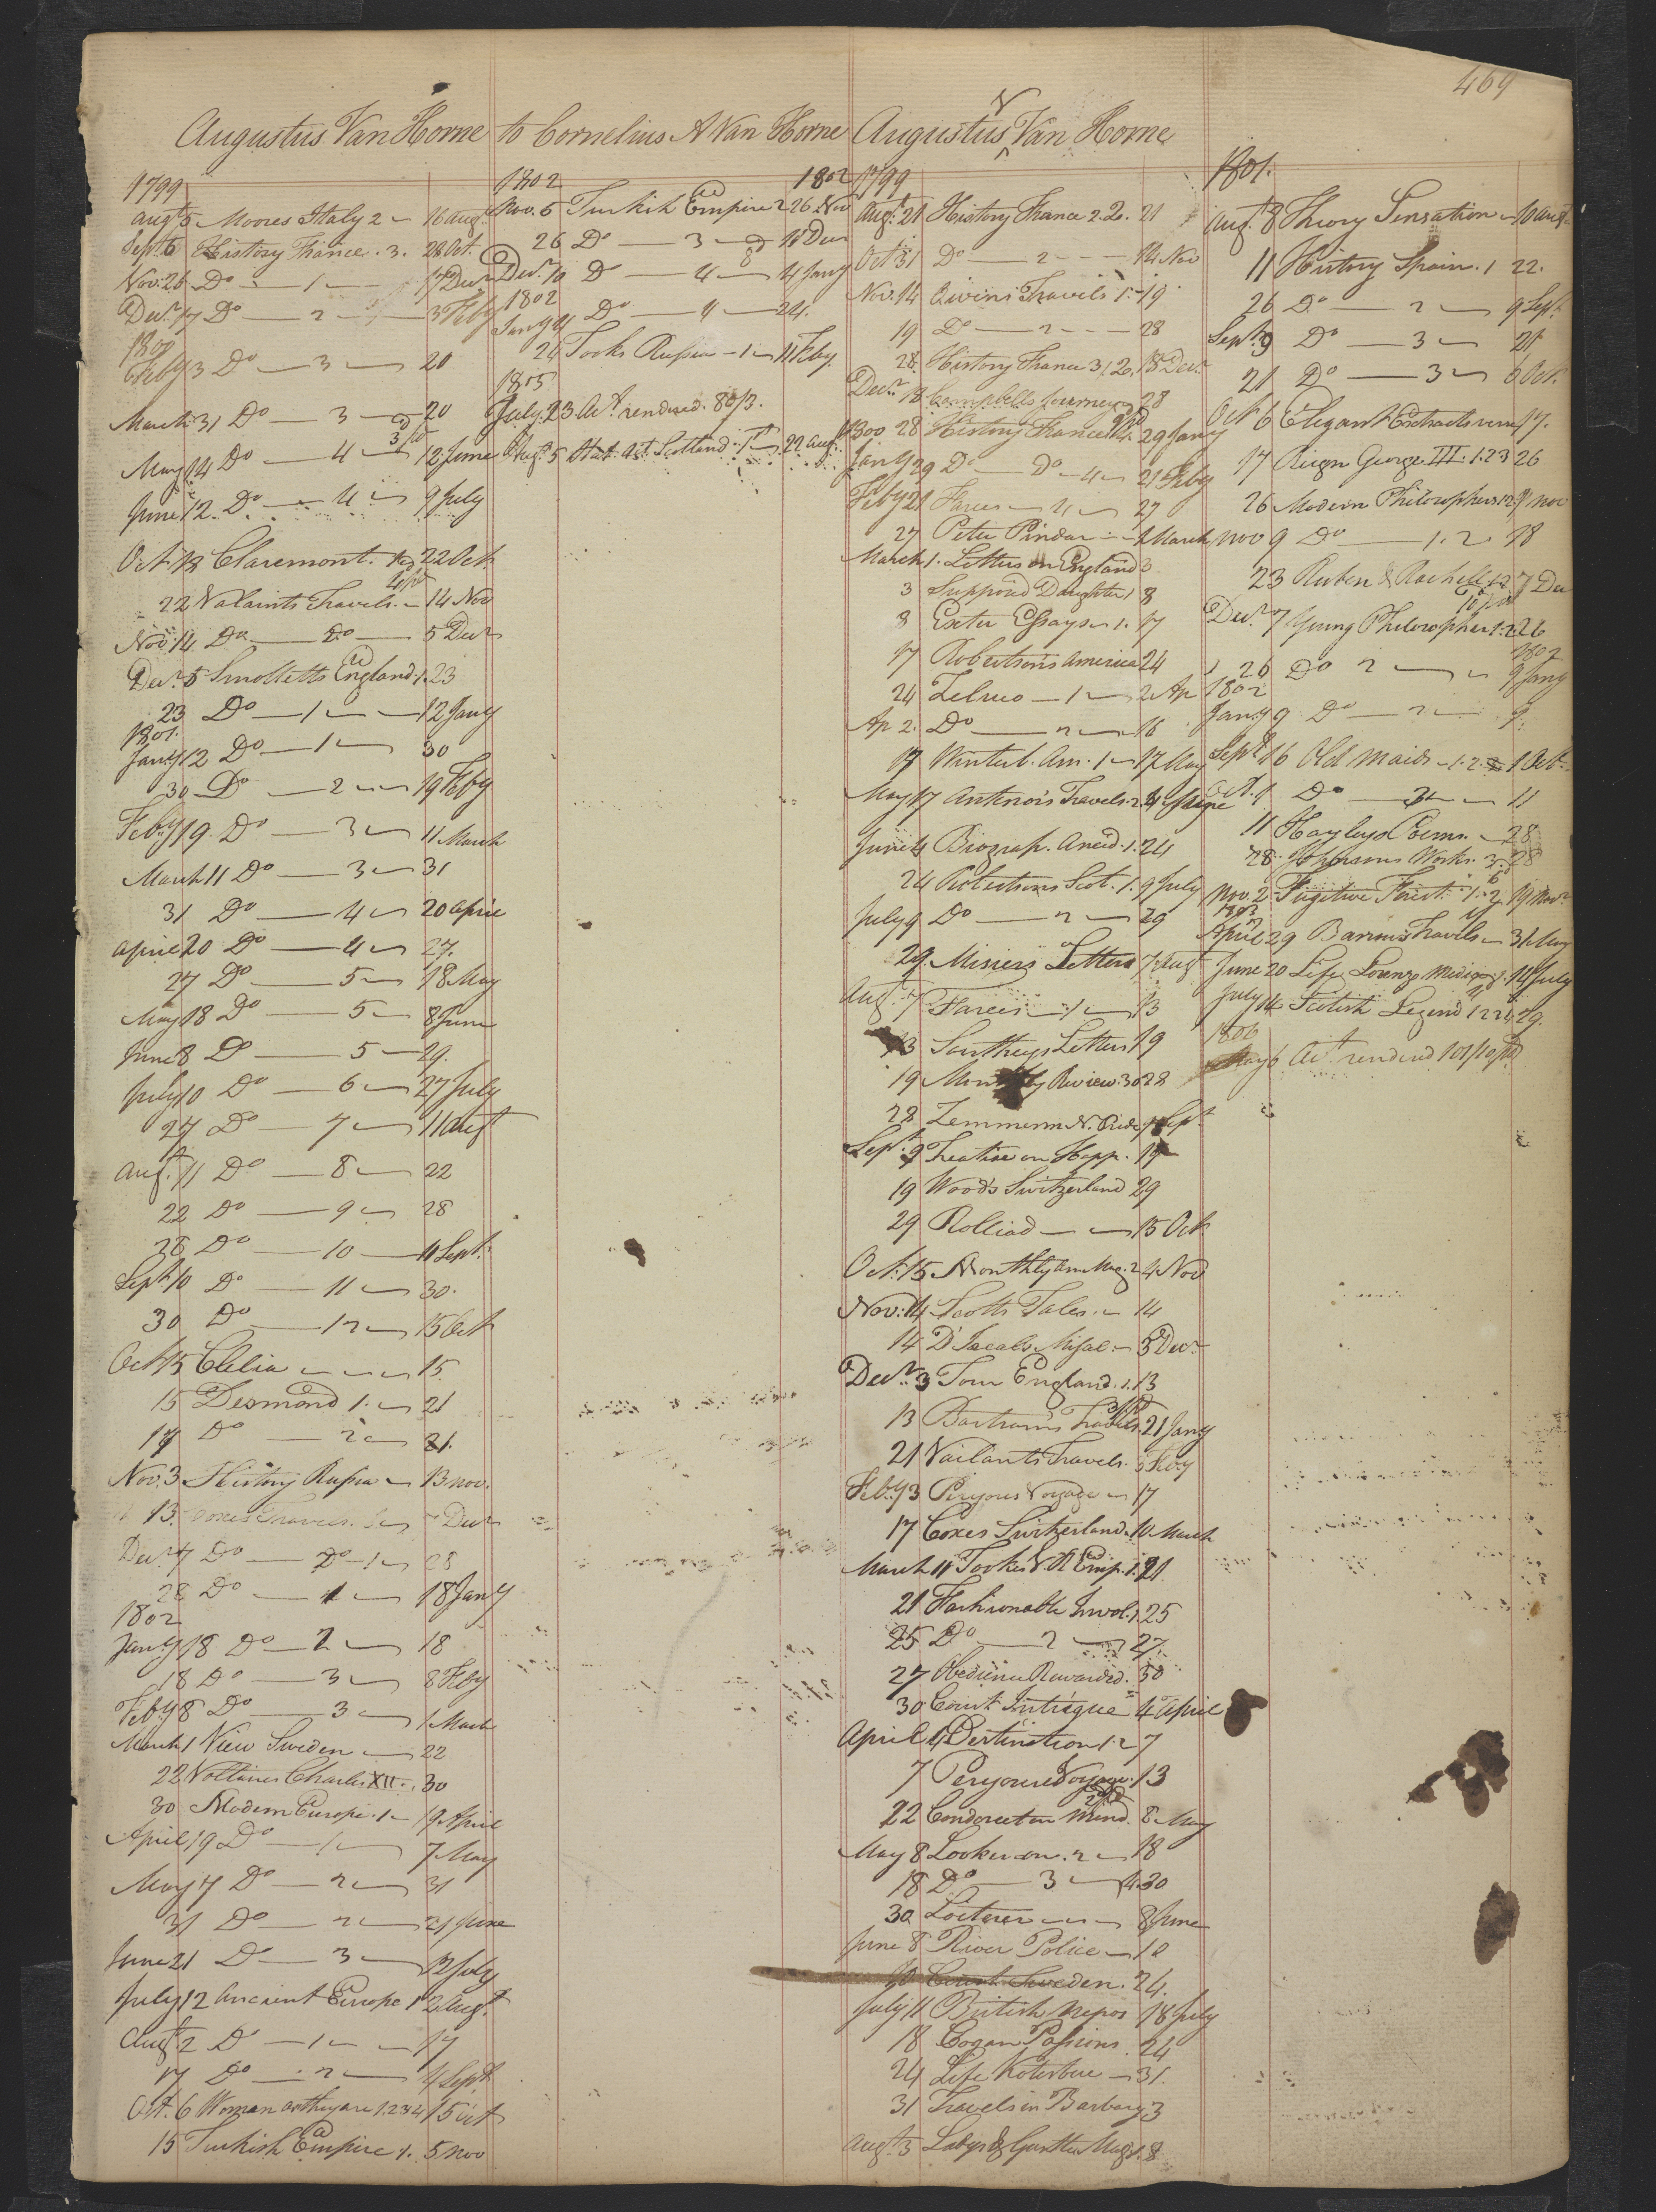 469
Augustus Van Horne to Cornelius A Van Horne
1799
Augt 5 Moores Italy 2 16 Augt
Sept. 6 History France. 3. 28 Oct.
Nov: 26 Do 1 17 Decr
Decr. 17 Do 2 3 Feby
1800
Feby 3 Do 3 20
March 31 Do 3 20
May 14 Do 4 3/ pd 12 June
June 12. Do 4 9 July
Oct. 18 Claremont. 22 Oct
22 Valaints Travels. 4/ pd 14 Nov
Nov 14 Do Do 5 Decr
Decr. 5 Smolletts England. 1. 23
23 Do 1 12 Jany
1801.
Jany 12 Do 1 30
30 Do 2 19 Feby
Feby 19. Do 3 11 March
March 11 Do 3 31
31 Do 4 20 April
April 20 Do 4 27.
27 Do 5 18 May
May 18 Do 5 8 June
June 8 Do 5 29.
July 10 Do 6 27 July
27 Do 7 11 Augt
Augt. 11 Do 8 22
22 Do 9 28
28 Do 10 Sept.
Sept. 10 Do 11 30.
30 Do 12 15 Oct
Oct 15 Clelia 15
15 Desmond 1. 21
17 Do 2 21.
Nov. 3 History Russia 13 Nov.
13. Coxes Travels. Decr
Decr. 7 Do Do 1 28
28 Do 1 18 Jany
1802
Jany 18 Do 2 18
18 Do 3 8 Feby
Feby 8 Do 3 1 March
March 1 View Sweden 22
22 Voltaires Charles XII. 30
30 Modern Europe. 1 19 April
April 19 Do 1 7 May
May 7 Do 2 31
31 Do 2 21 June
June 21 Do 3 12 July
July 12 Ancient Europe 1 2 Augt
Augt. 2 Do 1 17
17 Do 2 4 Sept
Oct. 6 Woman as they are 1.2.3.4 15 Oct
15 Turkish Empire 1. 5 Nov
1802 1802
Nov. 5 Turkish Empire 2 26 Nov
26 Do 3 Decr
Decr. 10 Do 4 4 Jany
1802
Jany 4 Do 4 24.
24 Tooks Russia 1 11 Feby.
1805
July. 23 Act. rendered. 80/3.
Augt. 5 Stat. Act. Scotland. 1 22 Augt.
Augustus V Van Horne
1799
Augt. 21 History France 2. 20. 21
Oct. 31 Do 2 14 Nov
Nov. 14 Owins Travels 1. 19
19 Do 2 28
28. History France 3 / 20. 18 Decr.
Decr. 18 Campbells Journey 28
1800 28 History France 4. 29 Jany
Jany 29 Do Do 4 21 Feby
Feby 21 Farces 4 27
27 Peter Pindar 1 March
March 1. Letters on England 3
3 Supposed Daughter 1 8
8 Exeter Essays 1. 17
17 Robertsons America 24
24 Zeluco 1 2 Ap
Ap 2. Do 2 16
17 Winterb. Am. 1 17 May
May 17 Antenors Travels. 2 4 June
June 4 Biograp. Anecd. 1. 24
24 Robertsons Scot. 1. 9 July
July 9 Do 2 29
29. Misiers Letters 7 Augt
Augt. 7. Farces 1 13
13 Southeys Letters 19
19 Monthly Review. 30 28
28 Zemmerm N. Pride Sept
Sept. 9 Treatise on Happ. 19
19 Woods Switzerland 29
29 Rolliad 15 Oct
Oct: 15 Monthly Am Mag. 2 4 Nov
Nov: 14 Scotts Tales. 14
14 D'Isealis Misal. 3 Decr
Decr. 3 Tour England. 1. 13
13 Bartrams Travels 3/ pd 21 Jany
21 Vailants Travels. 3 Feby
Feby 3 Peryous Voyage 17
17 Coxes Switzerland. 10 March
March 11 Tookes V. R. Emp. 1. 21
21 Fashionable Invol. 1. 25
25 Do 2 27.
27 Obedience Rewarded. 30
30 Court Intrigue 4 April
April 4 Destination 1. 2 7
7 Peryoured Voyage. 13
22 Condorcet on Mind. 8 May
May 8 Looker on. 2 18
18 Do 3 4. 30
30 Loiterer 8 June
June 8 River Police 10
10 Court Sweden. 24.
July 11 British Nepos 18 July
18 Cogan Passions. 24
24 Life Kotzebue 31.
31 Travels in Barbary 3
Augt. 3 Ladys & Gentln Mag. 1. 8
1801.
Augt. 8 Theory Sensation 10 Augt.
11 History Spain. 1 22.
26 Do 2 9 Sept.
Sept. 9 Do 3 21
21 Do 3 6 Oct.
Oct 6 Elegant Extracts verse 17.
17 Reign George III. 1.2.3 26
26 Modern Philosophers 1.2 9 Nov
Nov 9 Do 1. 2. 18
23 Ruben & Rachell 1.2 7 Dec
Decr. 7 Young Philosopher 1.2 26
1802
26 Do 2 9 Jany
1802
Jany 9 Do 2 9.
Sept 16 Old Maids 1. 2. 1 Oct.
Oct. 1 Do 3 11
11 Hayleys Poems. 28
28. Johnsons Works. 3. 28
Nov. 2 Fugitive Forest. 1. 2 19 Nov.
1803
April 29 Barrows Travels 31 May
June 20 Life Lorenzo Medicis 1. 14 July
July 14 Scotish Legend 1 2 29.
1806
May 6 Act rendered 101/10 pd